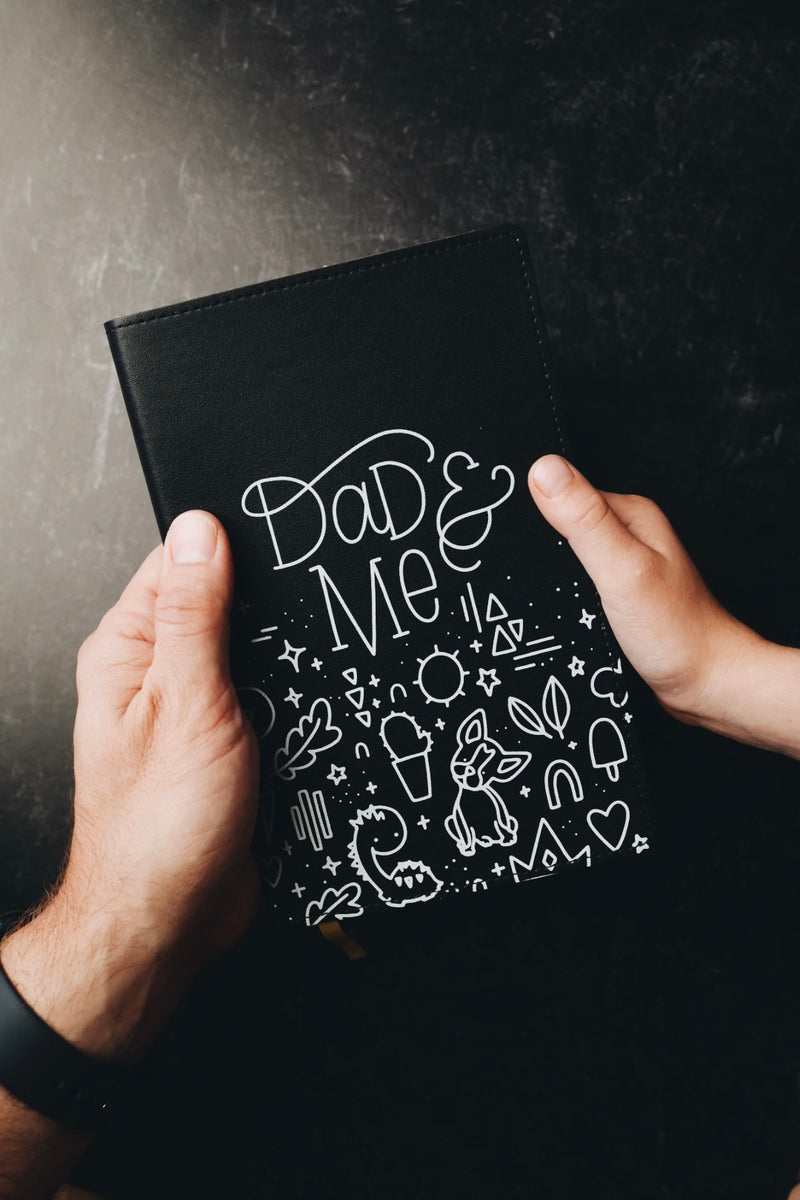 Dad &
Me